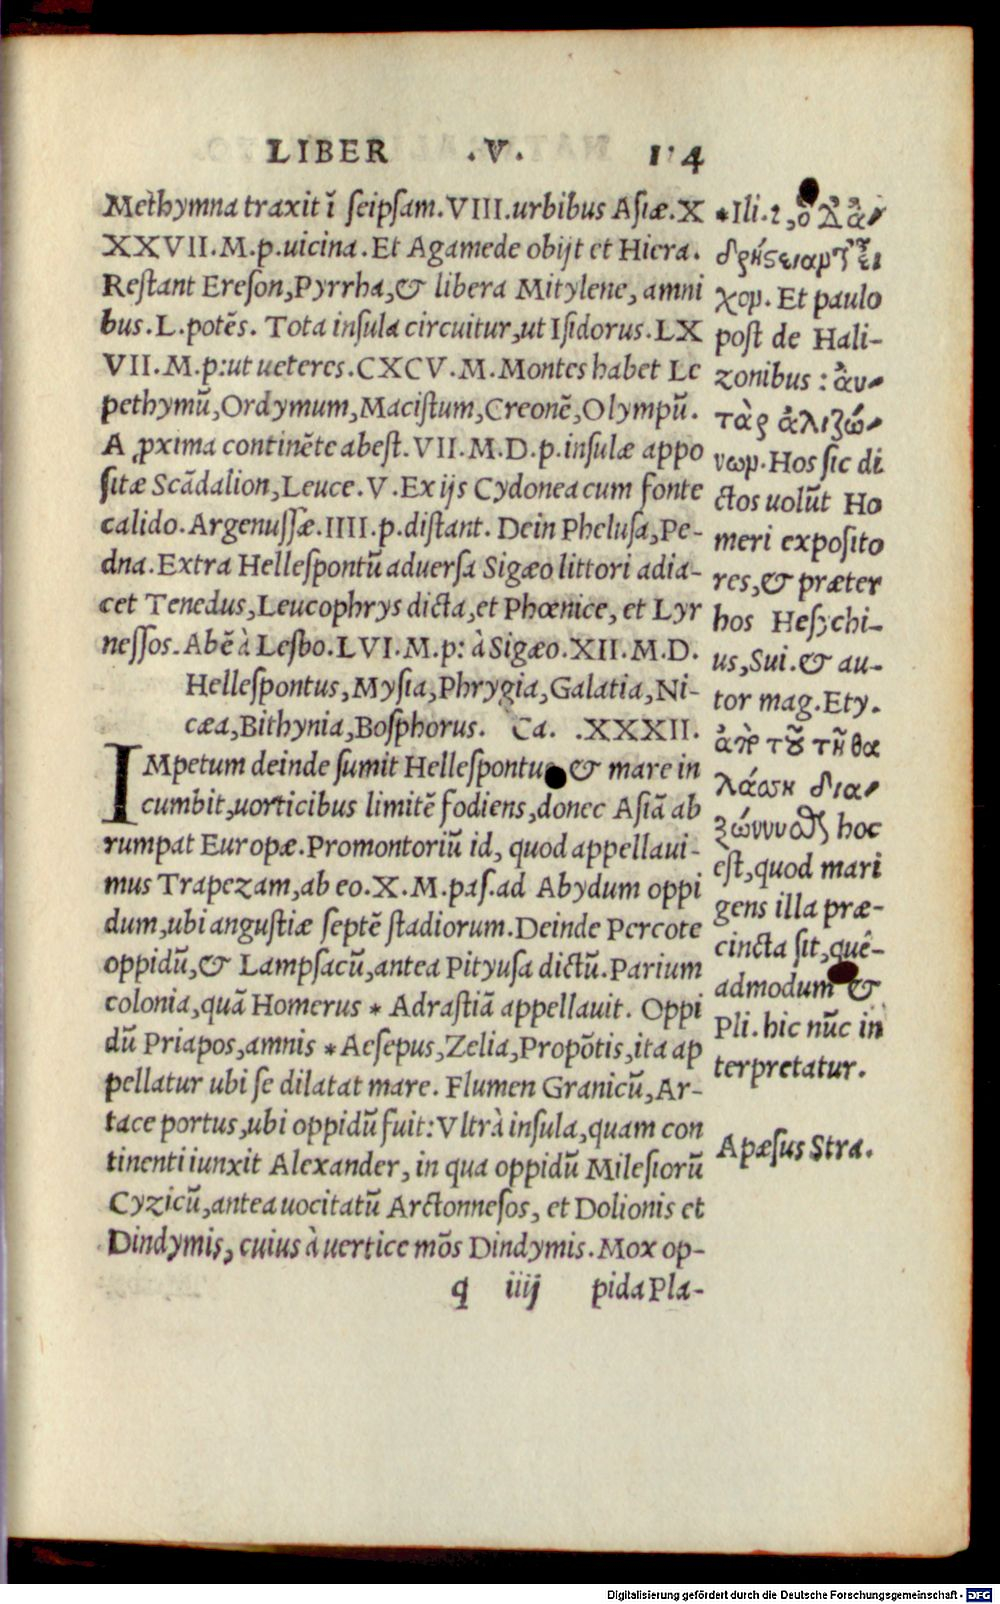 LIBER .V. 1'4
Methymna traxit ĩ ſeipſam.VIII.urbibus Aſiæ.X
XXVII.M.p.uicina.Et Agamede obijt et Hiera.
Reſtant Ereſon,Pyrrha,& libera Mitylene, amni
bus.L.potẽs. Tota inſula circuitur,ut Iſidorus.LX
VII.M.p:ut ueteres.CXCV.M.Montes habet Le
pethymũ,Ordymum,Maciſtum,Creonẽ,Olympũ.
A ꝓxima continẽte abeſt.VII.M.D.p.inſulæ appo
ſitæ Scãdalion,Leuce.V.Ex ijs Cydonea cum fonte
calido.Argenuſſæ.IIII.p.diſtant. Dein Pheluſa,Pe-
dna.Extra Helleſpontũ aduerſa Sigæo littori adia-
cet Tenedus,Leucophrys dicta,et Phœnice, et Lyr
neſſos.Abẽ à Lesbo.LVI.M.p: à Sigæo.XII.M.D.
Helleſpontus,Myſia,Phrygia,Galatia,Ni-
cæa,Bithynia,Boſphorus. Ca. .XXXII.
IMpetum deinde ſumit Helleſpontu & mare in
cumbit,uorticibus limitẽ fodiens,donec Aſiã ab
rumpat Europæ.Promontoriũ id, quod appellaui-
mus Trapezam,ab eo.X.M.paſ.ad Abydum oppi
dum,ubi anguſtiæ ſeptẽ ſtadiorum.Deinde Percote
oppidũ,& Lampſacũ,antea Pityuſa dictũ.Parium
colonia,quã Homerus * Adraſtiã appellauit. Oppi
dũ Priapos,amnis *Aeſepus,Zelia,Propõtis,ita ap
pellatur ubi ſe dilatat mare. Flumen Granicũ,Ar-
tace portus,ubi oppidũ fuit:Vltrà inſula,quam con
tinenti iunxit Alexander, in qua oppidũ Mileſiorũ
Cyzicũ,antea uocitatũ Arctonneſos, et Dolionis et
Dindymis, cuius à uertice mõs Dindymis.Mox op-
q iiij pida Pla-
*Ili.2,
χομ. Et paulo
poſt de Hali-
zonibus : ἀυ-
τὰρ ἁλιζώ-
νωμ.Hos ſic di
ctos uolũt Ho
meri expoſito
res,& præter
hos Heſychi-
us,Sui.& au-
tor mag.Ety.
ἀπὸ τοῦ τῇ θα
λάσσῃ δια-
ζώννυσθαι hoc
eſt,quod mari
gens illa præ-
cincta ſit,quẽ-
admodum &
Pli.hic nũc in
terpretatur.
Apæſus Stra.
Digitalisierung gefördert durch die Deutsche Forschungsgemeinschaft - DFG